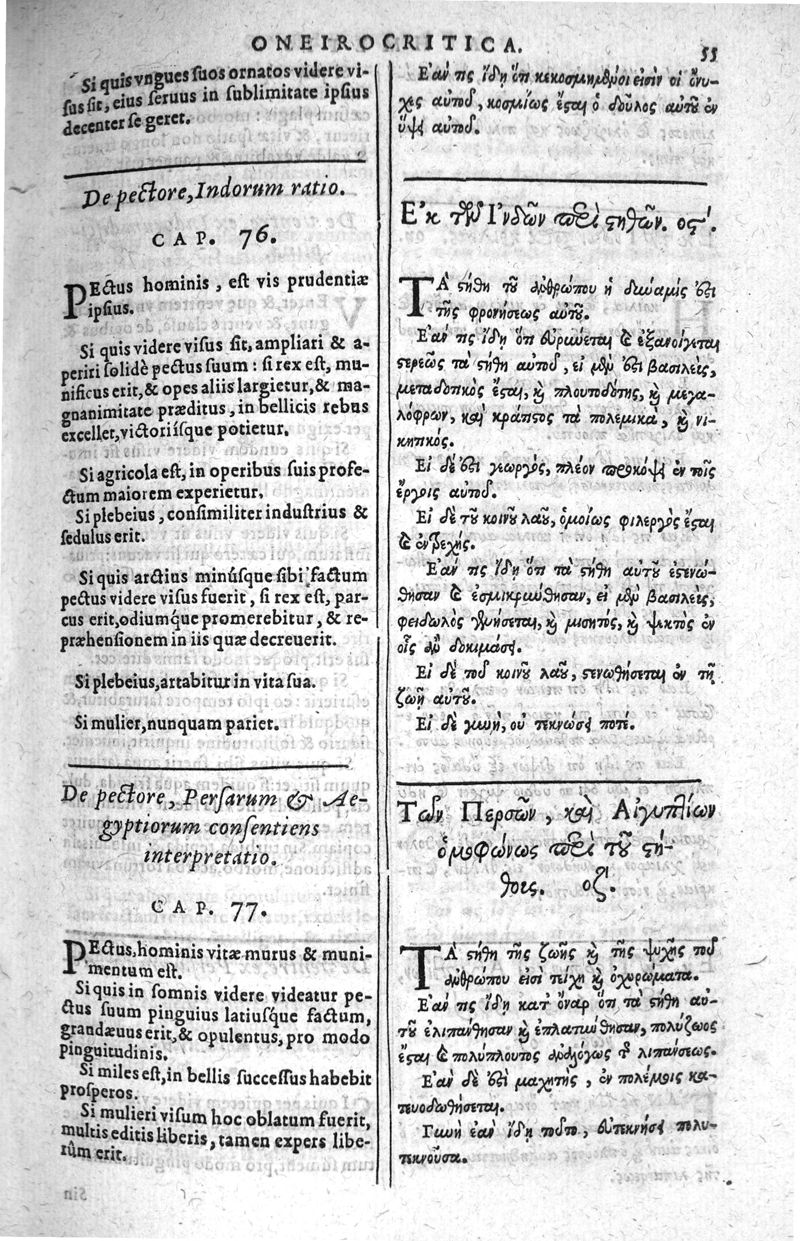 ONEIROCRITICA.
55
Si quis vngues suos ornatos videre vi-
sus sit, eius seruus in sublimitate ipsius
decenter se geret.
De pectore, Indorum ratio.
CAP. 76.
PEctus hominis, est vis prudentiæ
ipsius.
Si quis videre visus sit, ampliari & a-
periri solidè pectus suum: si rex est, mu-
nificus erit, & opes aliis largietur, & ma-
gnanimitate præditus, in bellicis rebus
excellet, victoriísque potietur.
Si agricola est, in operibus suis profe-
ctum maiorem experietur.
Si plebeius, consimiliter industrius &
sedulus erit.
Si quis arctius minúsque sibi factum
pectus videre visus fuerit, si rex est, par-
cus erit, odiumque promerebitur, & re-
præhensionem in iis quæ decreuerit.
Si plebeius, artabitur in vita sua.
Si mulier, nunquam pariet.
De pectore, Persarum & Ae-
gyptiorum consentiens
interpretatio.
CAP. 77.
PEctus, hominis vitæ murus & muni-
mentum est.
Si quis in somnis videre videatur pe-
ctus suum pinguius latiusque factum,
grandæuus erit, & opulentus, pro modo
pinguitudinis.
Si miles est, in bellis successus habebit
prosperos.
Si mulieri visum hoc oblatum fuerit,
multis editis liberis, tamen expers libe-
rûm erit.
Ἐάν τις ἴδῃ ὅτι κεκοσμημένοι εἰσὶν οἱ ὄνυ-
χες αὐτοῦ, κοσμίως ἔσται ὁ δοῦλος αὐτοῦ ἐν
ὕψει αὐτοῦ.
Ἐκ τῶν Ἰνδῶν περὶ στηθῶν. οςʹ.
ΤΑ στήθη τοῦ ἀνθρώπου ἡ δύναμίς ἐστι
τῆς φρονήσεως αὐτοῦ.
Ἐάν τις ἴδῃ ὅτι εὐρύνεται καὶ ἐξανοίγεται
στερεῶς τὰ στήθη αὐτοῦ, εἰ μὲν ἐστι βασιλεὺς,
μεταδοτικὸς ἔσται, καὶ πλουτοδότης, καὶ μεγα-
λόφρων, καὶ κράτιστος τὰ πολεμικὰ, καὶ νι-
κητικός.
Εἰ δέ ἐστι γεωργὸς, πλέον προκόψει ἐν τοῖς
ἔργοις αὐτοῦ.
Εἰ δὲ τοῦ κοινοῦ λαοῦ, ὁμοίως φιλεργὸς ἔσται
καὶ ἐνδεχής.
Ἐάν τις ἴδῃ ὅτι τὰ στήθη αὐτοῦ ἐστενώ-
θησαν καὶ ἐσμικρύνθησαν, εἰ μὲν βασιλεὺς,
φειδωλὸς γενήσεται, καὶ μισητὸς, καὶ ψεκτὸς ἐν
οἷς ἂν δοκιμάσῃ.
Εἰ δὲ τοῦ κοινοῦ λαοῦ, στενωθήσεται ἐν τῇ
ζωῇ αὐτοῦ.
Εἰ δὲ γυνὴ, οὐ τεκνώσει ποτέ.
Τῶν Περσῶν, καὶ Αἰγυπτίων
ὁμοφώνως περὶ τοῦ στή-
θους. οζʹ.
ΤΑ στήθη τῆς ζωῆς καὶ τῆς ψυχῆς τοῦ
ἀνθρώπου εἰσὶ τείχη καὶ ὀχυρώματα.
Ἐάν τις ἴδῃ κατ' ὄναρ ὅτι τὰ στήθη αὐ-
τοῦ ἐλιπάνθησαν καὶ ἐπλατύνθησαν, πολύζωος
ἔσται καὶ πολύπλουτος ἀναλόγως τῆς λιπάνσεως.
Ἐὰν δέ ἐστι μαχητὴς, ἐν πολέμοις κα-
τευοδωθήσεται.
Γυνὴ ἐὰν ἴδῃ τοῦτο, ἀτεκνήσει πολυ-
τεκνοῦσα.